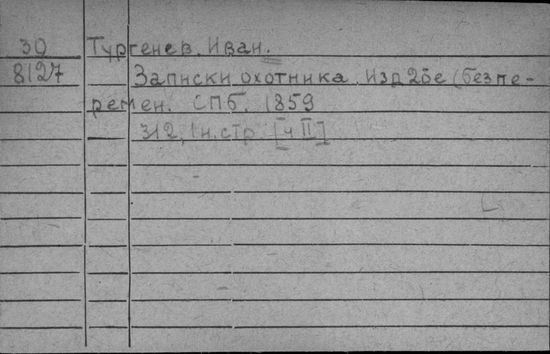 30 Тургенев, Иван.
8127 Записки охотника. Изд 2ое (без пе-
ремен. СПб. 1859
312, 1 н. стр [ч II]